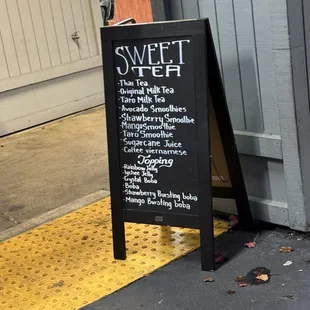 SWEET
TEA
- Thai Tea
- Original Milk Tea
- Taro Milk Tea
- Avocado Smoothies
- Strawberry Smoothie
- Mango Smoothie
- Taro Smoothie
- Sugarcane Juice
- Coffee viernarnese
Topping
- Rainbow Jelly
- Lychee Jelly
- Crystal Boba
- Boba
- Strawberry Bursting boba
- Mango Bursting boba